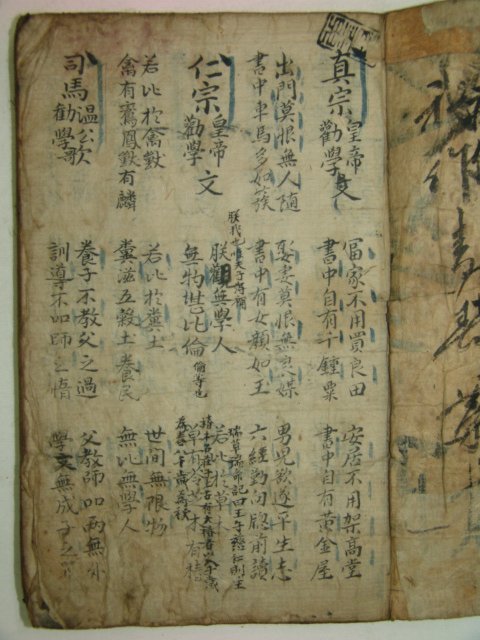 真宗皇帝勸學文
富家不用買良田
書中自有千鍾粟
安居不用架高堂
書中自有黃金屋
出門莫恨無人隨
書中車馬多如簇
娶妻莫恨無良媒
書中有女顔如玉
男兒欲遂平生志
六經勤向窓前讀
仁宗皇帝勸學文
朕我也唯天子得稱
朕觀無學人
無物堪比倫 倫等也
瑞草瑞命記曰王者慈仁則生
若比於草木
草有芝木有椿
有大椿者以八千歲
爲春八千歲爲秋
若比於禽獸
禽有鸞鳳獸有麟
若比於糞土
糞滋五穀土養民
世間無限物
無比無學人
司馬溫公勸學歌
養子不教父之過
訓導不吅師之惰
父教師吅兩無外
學文無成子之罪